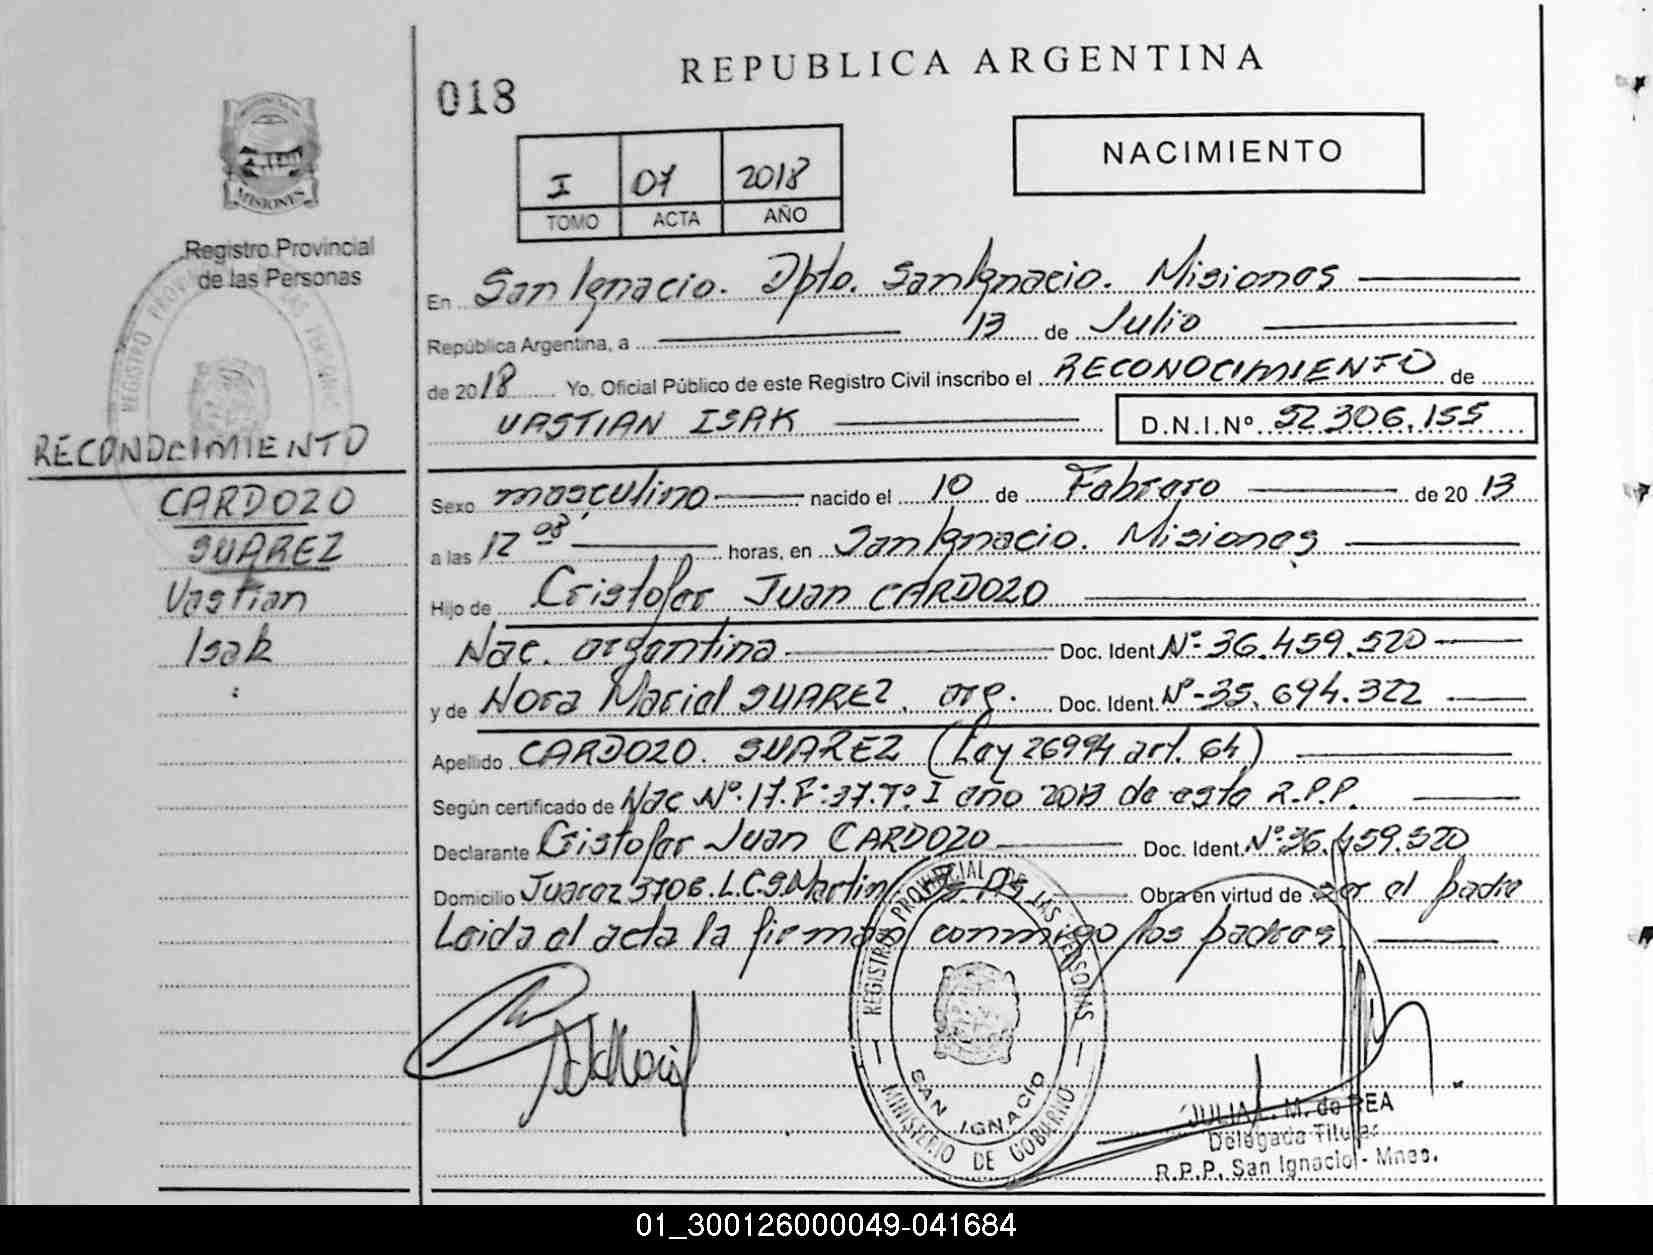 REPUBLICA ARGENTINA
018
NACIMIENTO
I 07 2018
TOMO ACTA AÑO
MISIONES
Registro Provincial
de las Personas
RECONOCIMIENTO
CARDOZO
SUAREZ
Vastian
Isak
En San Ignacio. Dpto. San Ignacio. Misiones
República Argentina, a 13 de Julio
de 2018 Yo. Oficial Público de este Registro Civil inscribo el RECONOCIMIENTO de
VASTIAN ISAK D.N.I.Nº 52.306.155
Sexo masculino nacido el 10 de Febrero de 2013
a las 12 08' horas, en San Ignacio. Misiones
Hijo de Cristofer Juan CARDOZO
Nac. argentina Doc. Ident. Nº 36.459.520
y de Nora Mariel SUAREZ. arg. Doc. Ident. Nº 35.694.322
Apellido CARDOZO. SUAREZ (Ley 26994 art. 64)
Según certificado de Nac Nº:17.F:37.Tº I año 2013 de esta R.P.P.
Declarante Cristofer Juan CARDOZO Doc. Ident. Nº 36.459.520
Domicilio Juarez 3706. L.C.S.Martin Obra en virtud de ser el padre
Leida el acta la firman conmigo los padres
REGISTRO PROVINCIAL DE LAS PERSONAS
SAN IGNACIO
MINISTERIO DE GOBIERNO
JULIA L. M. de REA
Delegada Titular
R.P.P. San Ignacio - Mnes.
01_300126000049-041684